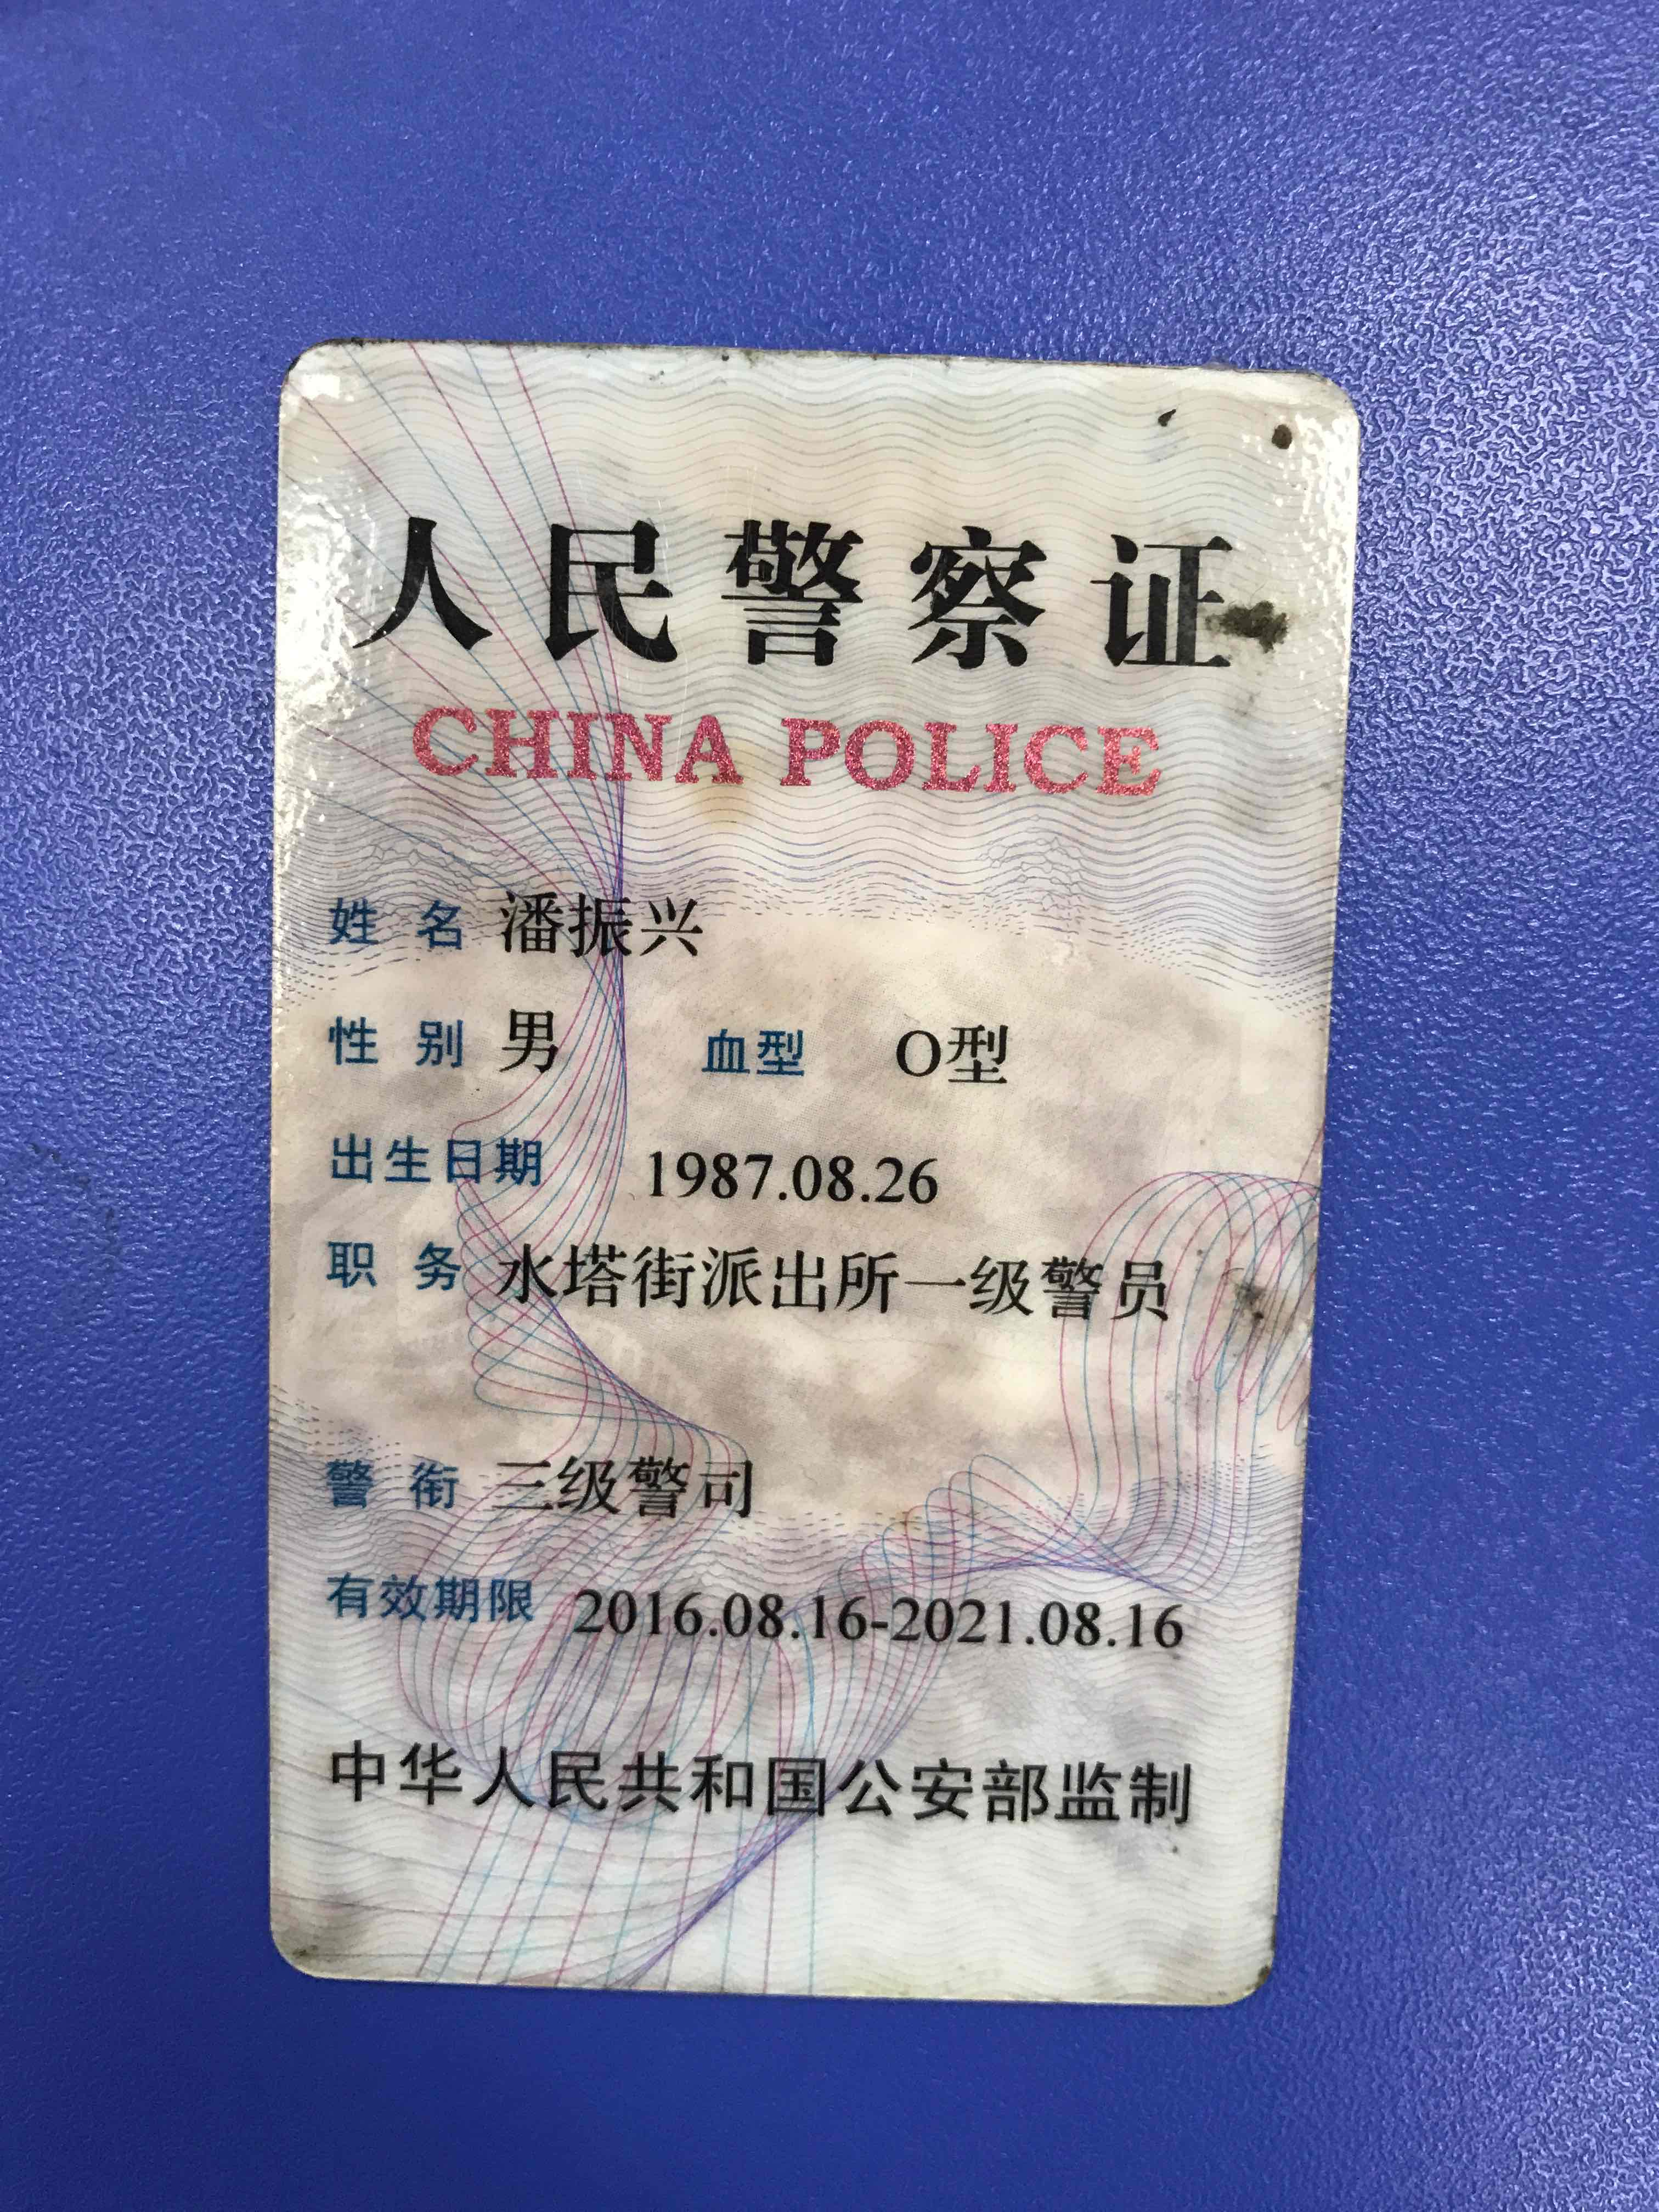 人民警察证
CHINA POLICE
姓 名 潘振兴
性 别 男 血型 O型
出生日期 1987.08.26
职 务 水塔街派出所一级警员
警 衔 三级警司
有效期限 2016.08.16-2021.08.16
中华人民共和国公安部监制